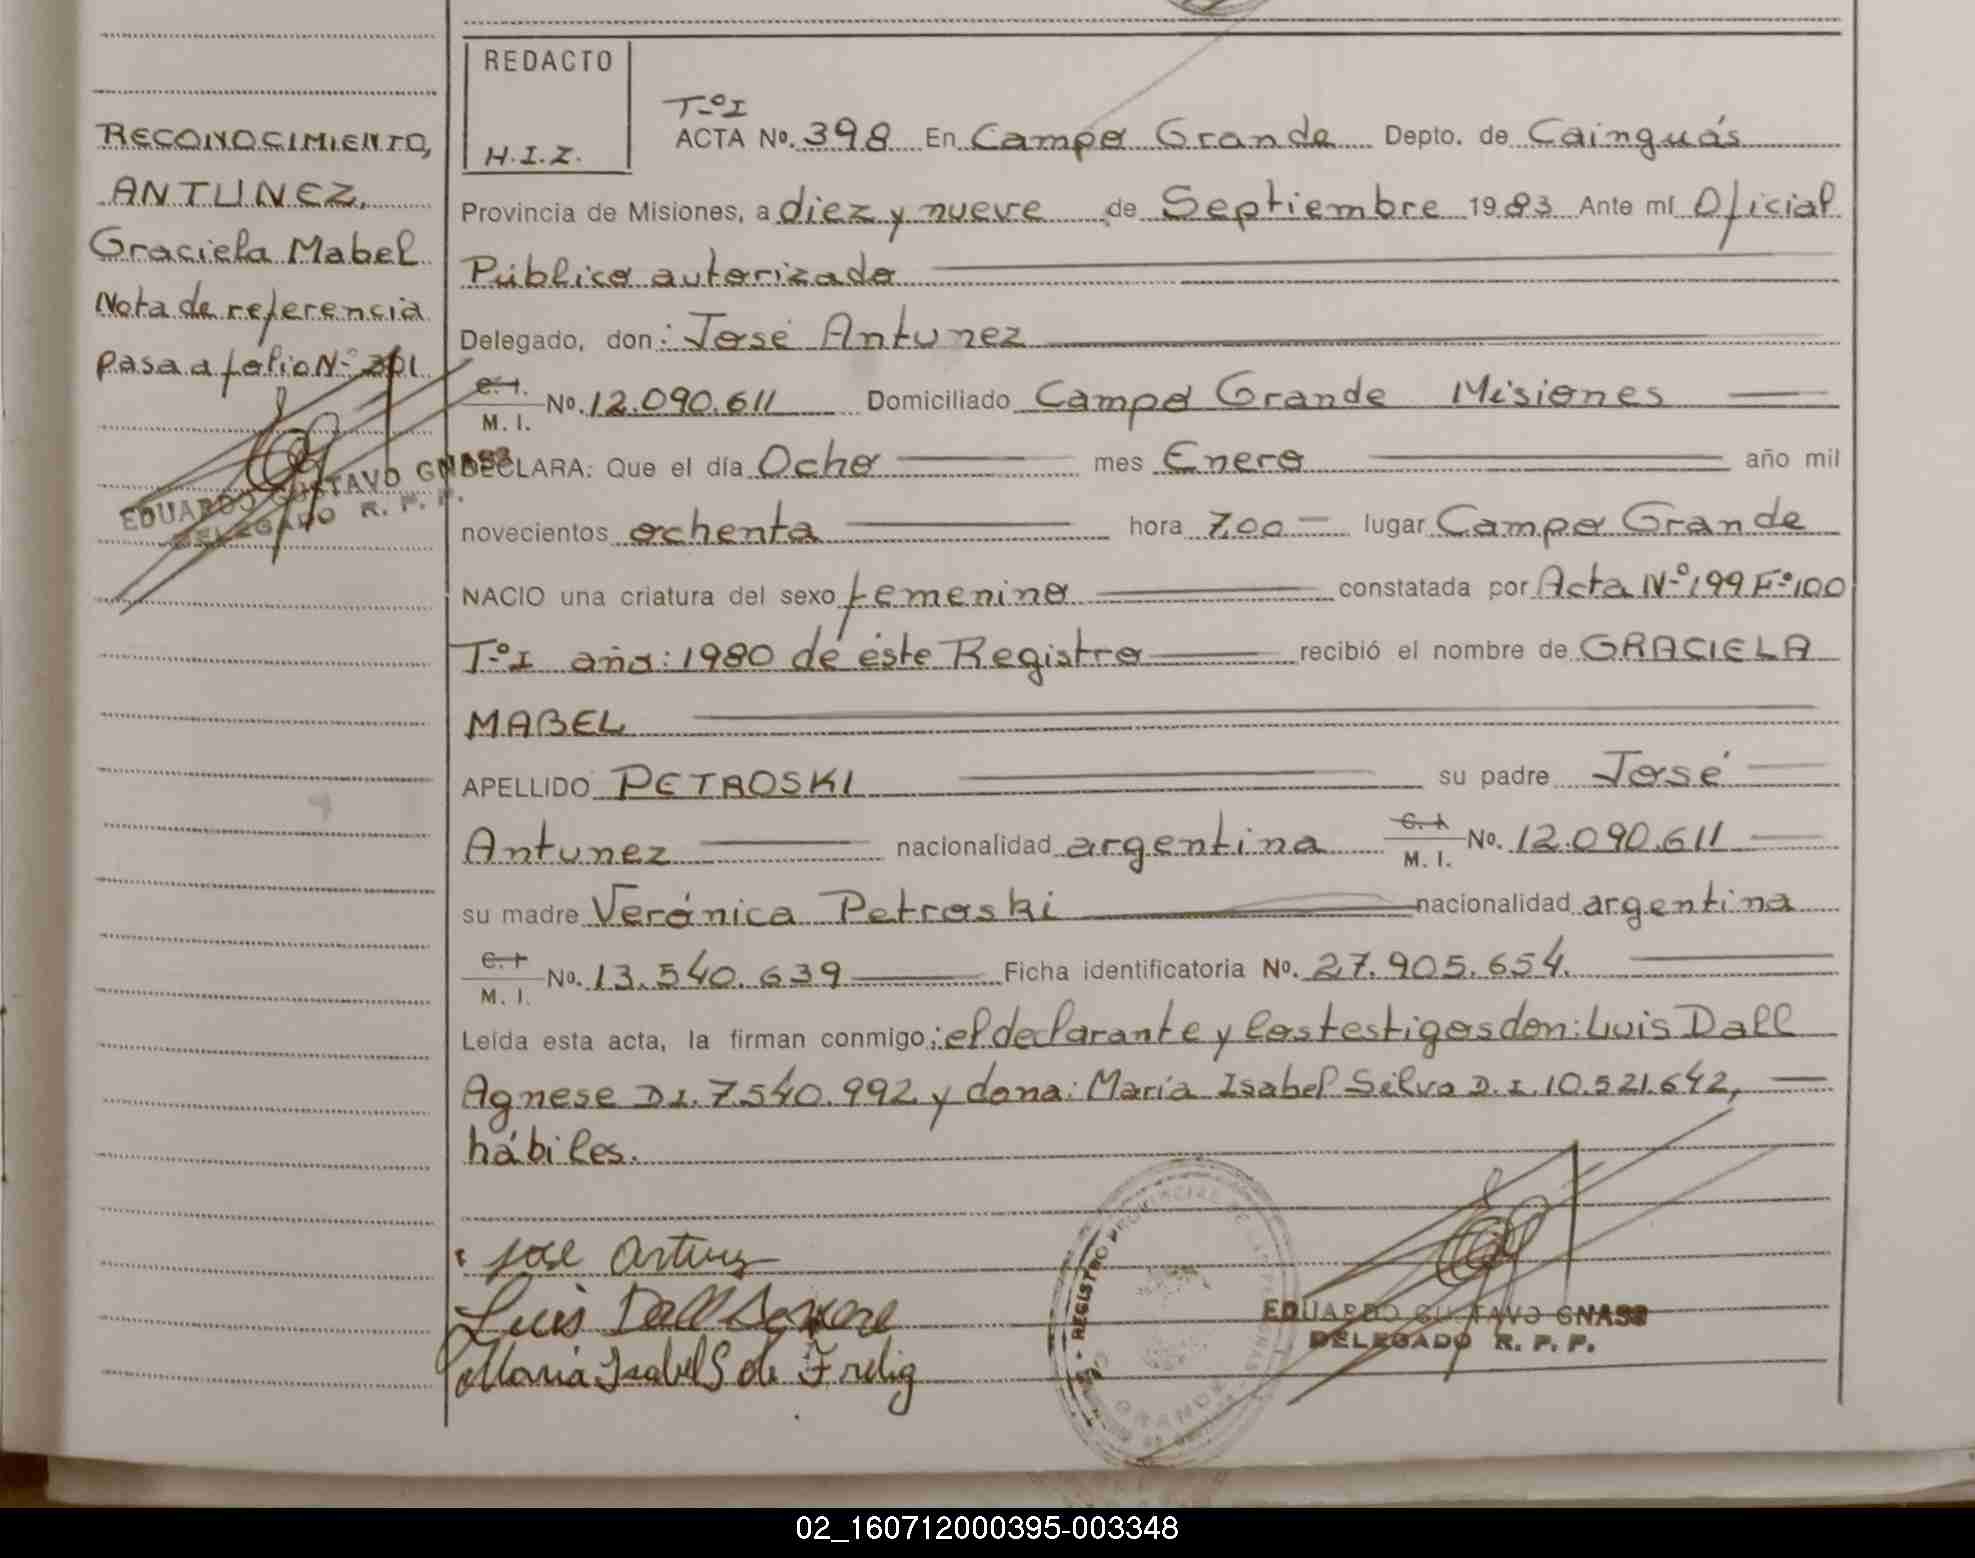 RECONOCIMIENTO,
ANTUNEZ,
Graciela Mabel
Nota de referencia
pasa a folio Nº 201
EDUARDO GUSTAVO GNASS
DELEGADO R. P. P.
REDACTO
H.I.Z.
T-º I
ACTA Nº. 398 En Campo Grande Depto. de Cainguás
Provincia de Misiones, a diez y nueve de Septiembre 1983 Ante mí Oficial
Público autorizado
Delegado, don: José Antunez
C. I.
M. I.
Nº. 12.090.611 Domiciliado Campo Grande Misiones
DECLARA: Que el día Ocho mes Enero año mil
novecientos ochenta hora 7,00 lugar Campo Grande
NACIO una criatura del sexo femenino constatada por Acta N-º 199 Fº 100
T-º I año: 1980 de éste Registro recibió el nombre de GRACIELA
MABEL
APELLIDO PETROSKI su padre José
Antunez nacionalidad argentina C. I. M. I. Nº. 12.090.611
su madre Verónica Petroski nacionalidad argentina
C. I.
M. I.
Nº. 13.540.639 Ficha identificatoria Nº. 27.905.654.
Leída esta acta, la firman conmigo; el declarante y los testigos don: Luis Dall
Agnese D.I. 7.540.992 y dona: María Isabel Silva D.I. 10.521.642,
hábiles.
José Antunez
Luis Dall Agnese
María Isabel S de Fredig
REGISTRO PROVINCIAL DE LAS PERSONAS
GRANDE
EDUARDO GUSTAVO GNASS
DELEGADO R. P. P.
02_160712000395-003348